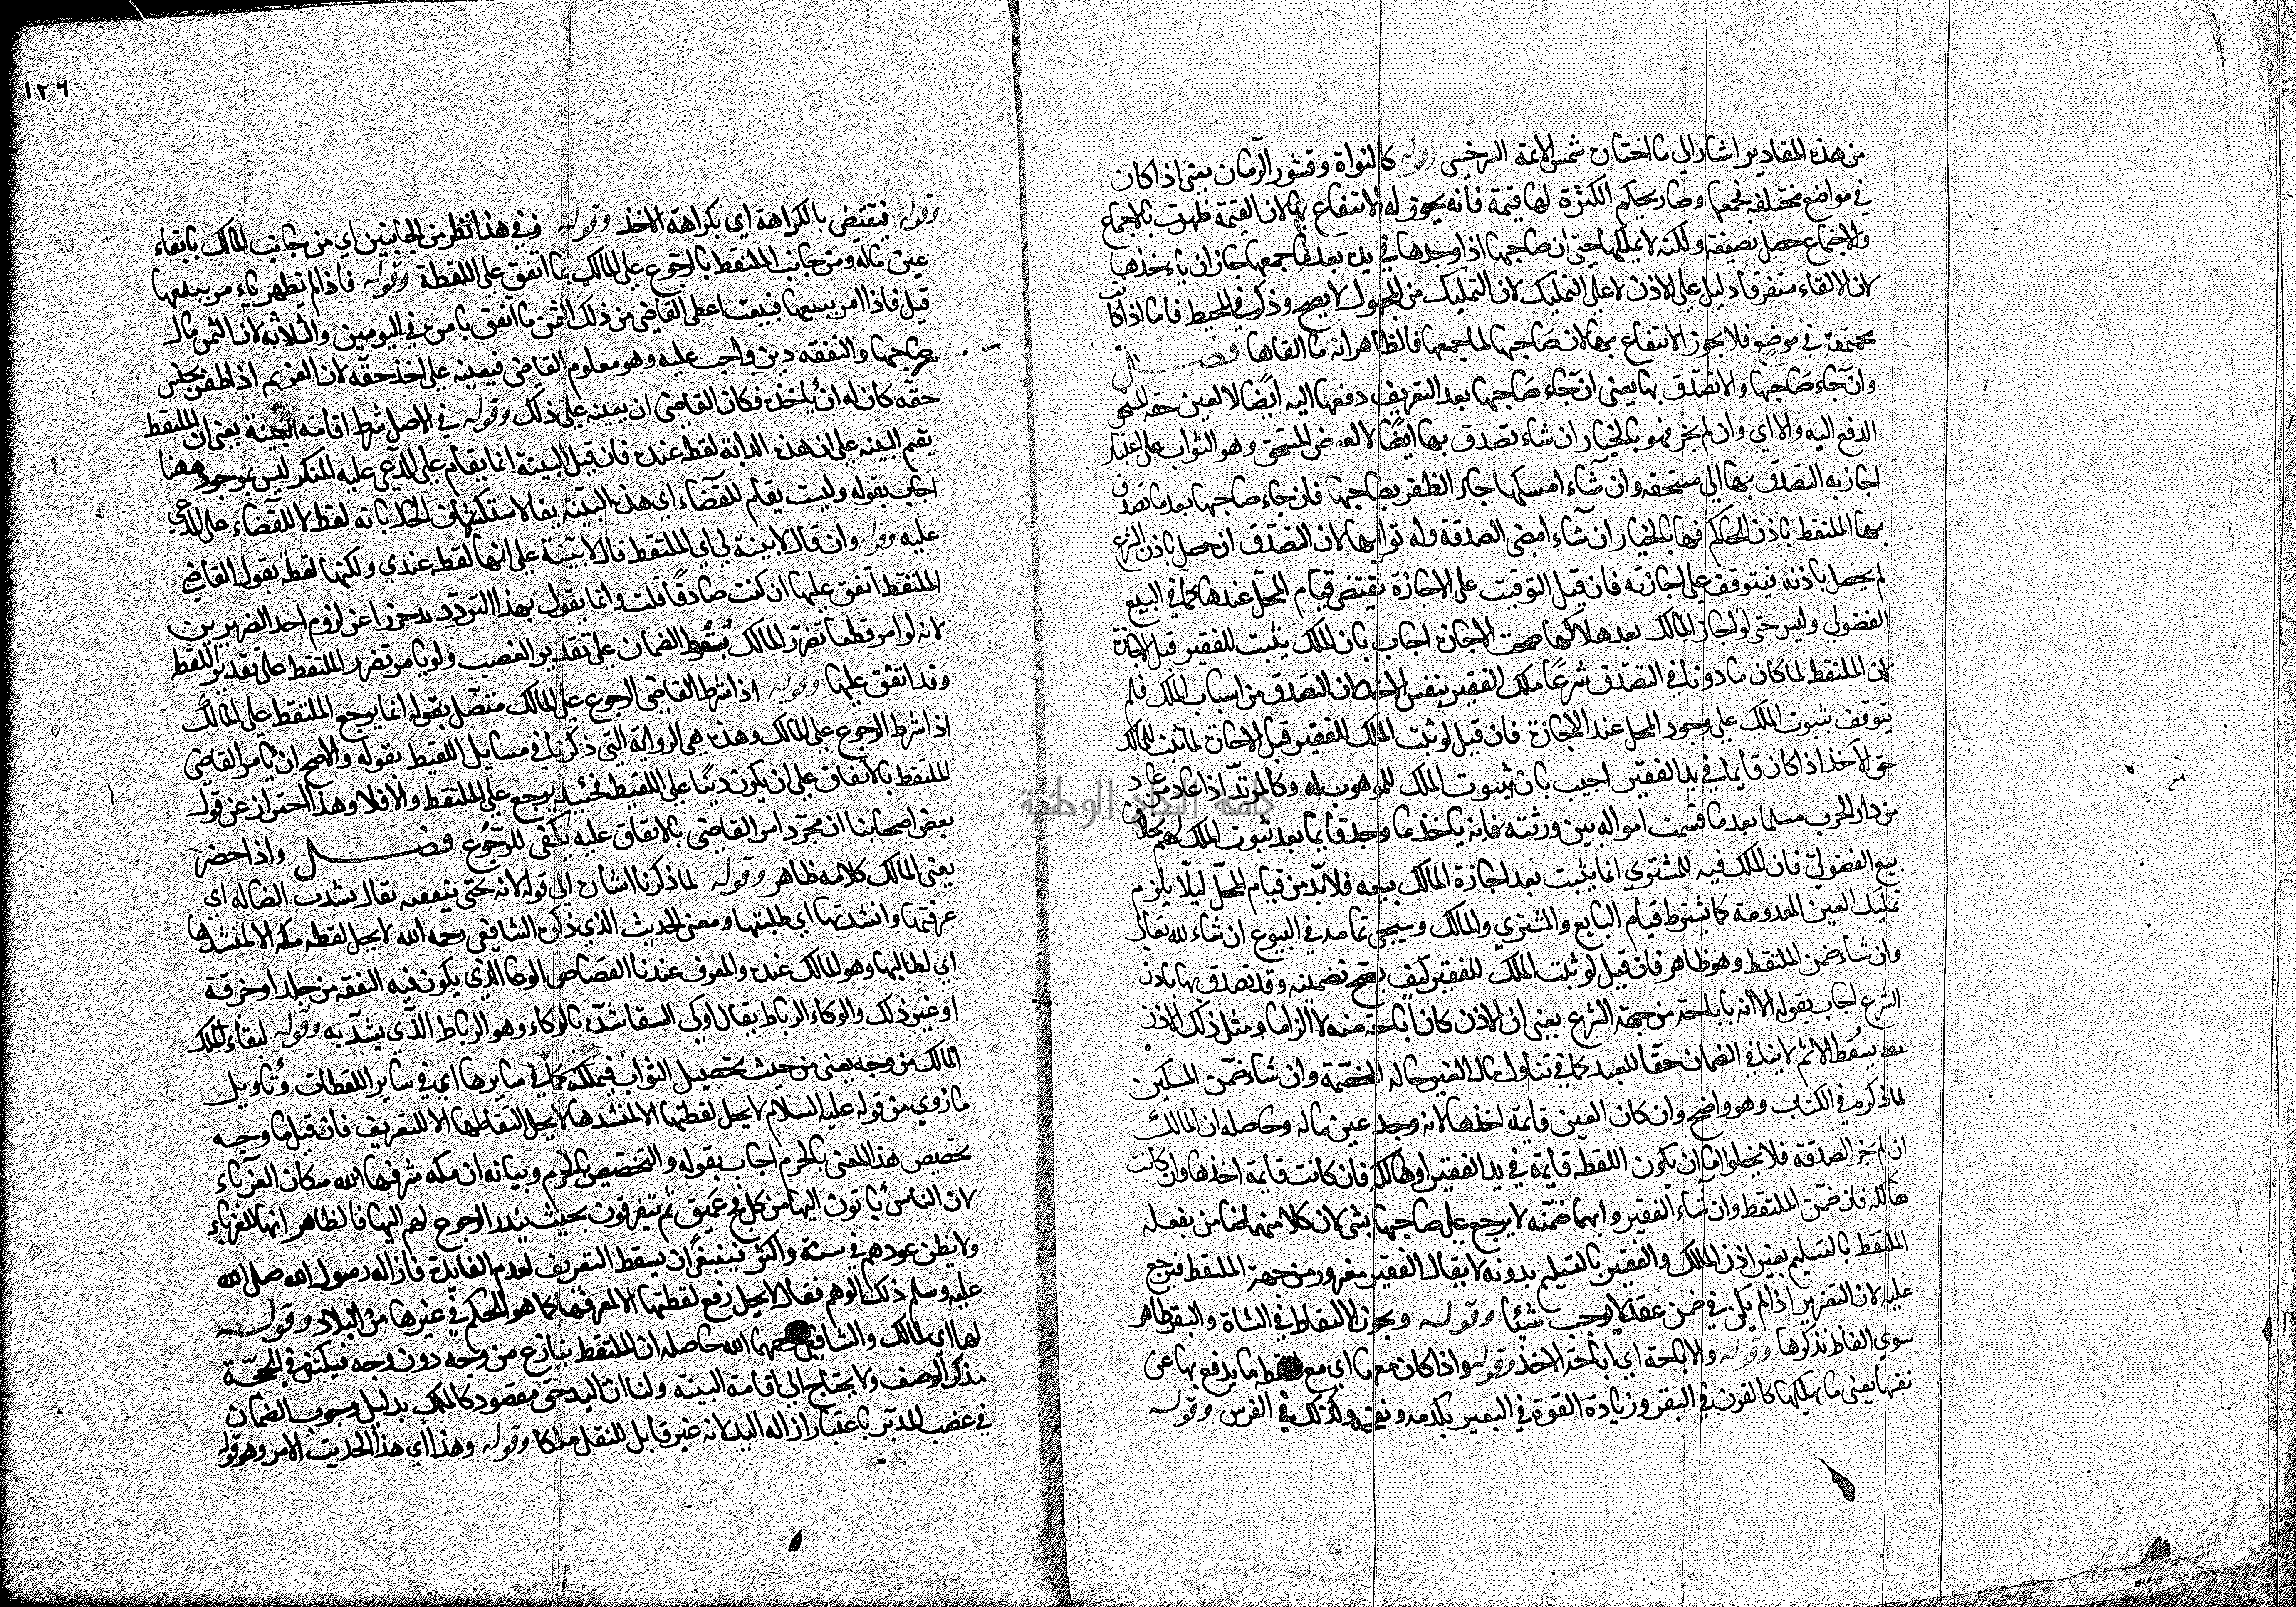 من هذه المقادير اشار الي ما اختاره شمس الايمة السرخسي وقوله كالنواة وقشور الرمان يعني اذا كان
في مواضع مختلفة فجمعها وصار بحكم الكثرة لها قيمة فانه يجوز له الانتفاع بها لان القيمة ظهرت بالاجماع
والاجتماع حصل بصنيعه ولكنه لا يملكها حتى ان صاحبها اذا وجدها في يده بعد ما جمعها جاز ان ياخذها
لان الالقاء متفرقا دليل علي الاذن لا علي التمليك لان التمليك من المجهول لا يصح وذكر في المحيط فاما اذا كانت
مجتمعة في موضع فلا يجوز الانتفاع بها لان صاحبها لما جمعها فالظاهر انه ما القاها فصل
وان جاء صاحبها والا تصدق بها يعني ان جاء صاحبها بعد التعريف دفعها اليه ايصالا لعين حقه المستحق
الدفع اليه والا اي وان لم يجئ فهو بالخيار ان شاء تصدق بها ايصالا لعوض المستحق وهو الثواب على اعتبار
اجازته التصدق بها الي مستحقه وان شاء امسكها رجاء الظفر بصاحبها فان جاء صاحبها بعد ما تصدق
بها الملتقط باذن الحاكم فهو بالخيار ان شاء امضى الصدقة وله ثوابها لان التصدق ان حصل باذن الشرع
لم يحصل باذنه فيتوقف علي اجازته فان قيل التوقيت على الاجازة يقتضي قيام المحل عندها كما في البيع
الفضولي وليس حتى لو اجاز المالك بعد هلاكها صحت الاجازة اجاب بان الملك يثبت للفقير قبل الاجازة
لان الملتقط لما كان ماذونا في التصدق شرعا ملك الفقير بنفس الاخذ لان التصدق من اسباب الملك فلم
يتوقف ثبوت الملك علي وجود المحل عند الاجازة فان قيل لو ثبت الملك للفقير قبل الاجازة لما ثبت للمالك
حق الاخذ اذا كان قايما في يد الفقير اجيب بان ثبوت الملك للموهوب له وكالمرتد اذا عاد من
من دار الحرب مسلما بعد ما قسمت امواله بين ورثته فانه ياخذ ما وجد قايما بعد ثبوت الملك لهم بخلاف
بيع الفضولي فان الملك فيه للمشتري انما يثبت بعد اجازة المالك بيعه فلا بد من قيام المحل ليلا يلزم
تمليك العين المعدومة كما يشترط قيام البايع والمشتري والمالك وسيجي تمامه في البيوع ان شاء الله تعالى
وان شاء ضمن الملتقط وهو ظاهر فان قيل لو ثبت الملك للفقير كيف يصح تضمينه وقد تصدق بها باذن
الشرع اجاب بقوله الا انه باباحة من جهة الشرع يعني ان الاذن كان اباحة منه لا الزاما ومثل ذلك الاذن
بعد يسقط الاثم لا ينافي الضمان حقا للعبد كما في تناول مال الغير حاله المخمصة وان شاء ضمن المسكين
لما ذكره في الكتاب وهو واضح وان كان العين قايمة اخذها لانه وجد عين ماله وحاصله ان المالك
ان لم يجز الصدقة فلا يخلوا اما ان يكون اللقطه قايمة في يد الفقير او هالكه فان كانت قايمة اخذها وان كانت
هالكه فان ضمن الملتقط وان شاء الفقير وايهما ضمنه لا يرجع علي صاحبها بشي لان كلا منهما ضامن بفعله
الملتقط بالتسليم بغير اذن المالك والفقير بالتسليم بدونه لا يقال الفقير مغرور من جهة الملتقط فيرجع
عليه لان التغرير اذا لم يكن في ضمن عقد لا يوجب شيئا وقوله ويجوز الالتقاط في الشاة والبقر ظاهر
سوي الفاظ نذكرها وقوله والاباحة اي اباحة الاخذ وقوله واذا كان معها اي مع اللقطه ما يدفع بها عن
نفسها يعني ما يهلكها كالقرن في البقر وزيادة القوة في البعير بكدمه ونفحه وكذلك في الفرس وقوله
١٢٦
وقوله فيقتضي بالكراهة اي بكراهة الاخذ وقوله وفي هذا نظر من الجانبين اي من جانب المالك بابقاء
عين ماله ومن جانب الملتقط بالرجوع على المالك بما انفق علي اللقطة وقوله فاذا لم تظهر يامر ببيعها
قيل فاذا امر ببيعها فبيعت اعطي القاضي من ذلك الثمن ما انفق بامره في اليومين والثلاثة لان الثمن مال
صاحبها والنفقه دين واجب عليه وهو معلوم القاضي فيعينه على اخذ حقه لان الغريم اذا ظفر بجنس
حقه كان له ان ياخذه فكان القاضي ان يعينه علي ذلك وقوله في الاصل شرط اقامة البينة يعني ان الملتقط
يقيم البينه علي ان هذه الدابة لقطه عنده فان قيل البينة انما يقام علي المدعي عليه المنكر ليس بموجود ههنا
اجاب بقوله وليست يقام للقضاء اي هذه البينة يقام لاستكشاف الحال بانه لقطه لا للقضاء على المدعي
عليه وقوله وان قال لا بينة لي اي الملتقط قال لا بينة علي انها لقطه عندي ولكنها لقطة يقول القاضي
الملتقط انفق عليها ان كنت صادقا قلت وانما يقول بهذا الترديد تحرزا عن لزوم احد الضررين
لانه لو امر قطعا تضرر المالك بسقوط الضمان علي تقدير الغصب ولو لم يامر تضرر الملتقط علي تقدير اللقطه
وقد انفق عليها وقوله اذا شرط القاضي الرجوع علي المالك متصل بقوله انما يرجع الملتقط علي المالك
اذا شرط الرجوع علي المالك وهذه هي الرواية التي ذكرناها في مسايل اللقيط بقوله والاصح ان يامر القاضي
الملتقط بالانفاق علي ان يكون دينا علي اللقيط فحينيذ يرجع علي الملتقط والا فلا وهذا احتراز عن قول
بعض اصحابنا ان مجرد امر القاضي بالانفاق عليه يكفي للرجوع فصل واذا حضر
يعني المالك كلامه ظاهر وقوله لما ذكرنا اشارة الي قوله لانه حتى ينفعه يقال نشدت الضالة اي
عرفتها وانشدتها اي طلبتها ومعنى الحديث الذي ذكره الشافعي رحمه الله لا يحل لقطه مكة الا لمنشدها
اي لطالبها وهو المالك عنده والمعرف عندنا العفاص الوعاء الذي يكون فيه النفقه من جلد او خرقة
او غير ذلك والوكاء الرباط يقال اوكى السقا شده بالوكاء وهو الرباط الذي يشد به وقوله لبقاء ملك
المالك من وجه يعني من حيث تحصيل الثواب فيملكه كما في سايرها اي في ساير اللقطات وتاويل
ما روي من قوله عليه السلام لا يحل لقطتها الا لمنشدها لا يحل التقاطها الا للتعريف فان قيل ما وجه
تخصيص هذا المعنى بالحرم اجاب بقوله والتخصيص بالحرم وبيانه ان مكه شرفها الله مكان الغرباء
لان الناس ياتون اليها من كل فج عميق ثم يتفرقون بحيث يندر الرجوع لهم اليها فالظاهر انها للغرباء
ولا يظن عودهم في سنة واكثر فينبغي ان يسقط التعريف لعدم الفايدة فازاله رسول الله صلى الله
عليه وسلم ذلك الوهم فقال لا يحل رفع لقطتها الا لمعرفها كما هو الحكم في غيرها من البلاد وقوله
لهما اي لمالك والشافعي رحمهما الله حاصله ان الملتقط ينازع من وجه دون وجه فيكتفى في الحجة
بذكر الوصف ولا يحتاج الي اقامة البينة ولنا ان اليد حق مقصود كالملك بدليل وجوب الضمان
في غصب المدبر باعتبار ازالة اليد لانه غير قابل للنقل ملكا وقوله وهذا اي هذا الحديث الامر وهو قوله